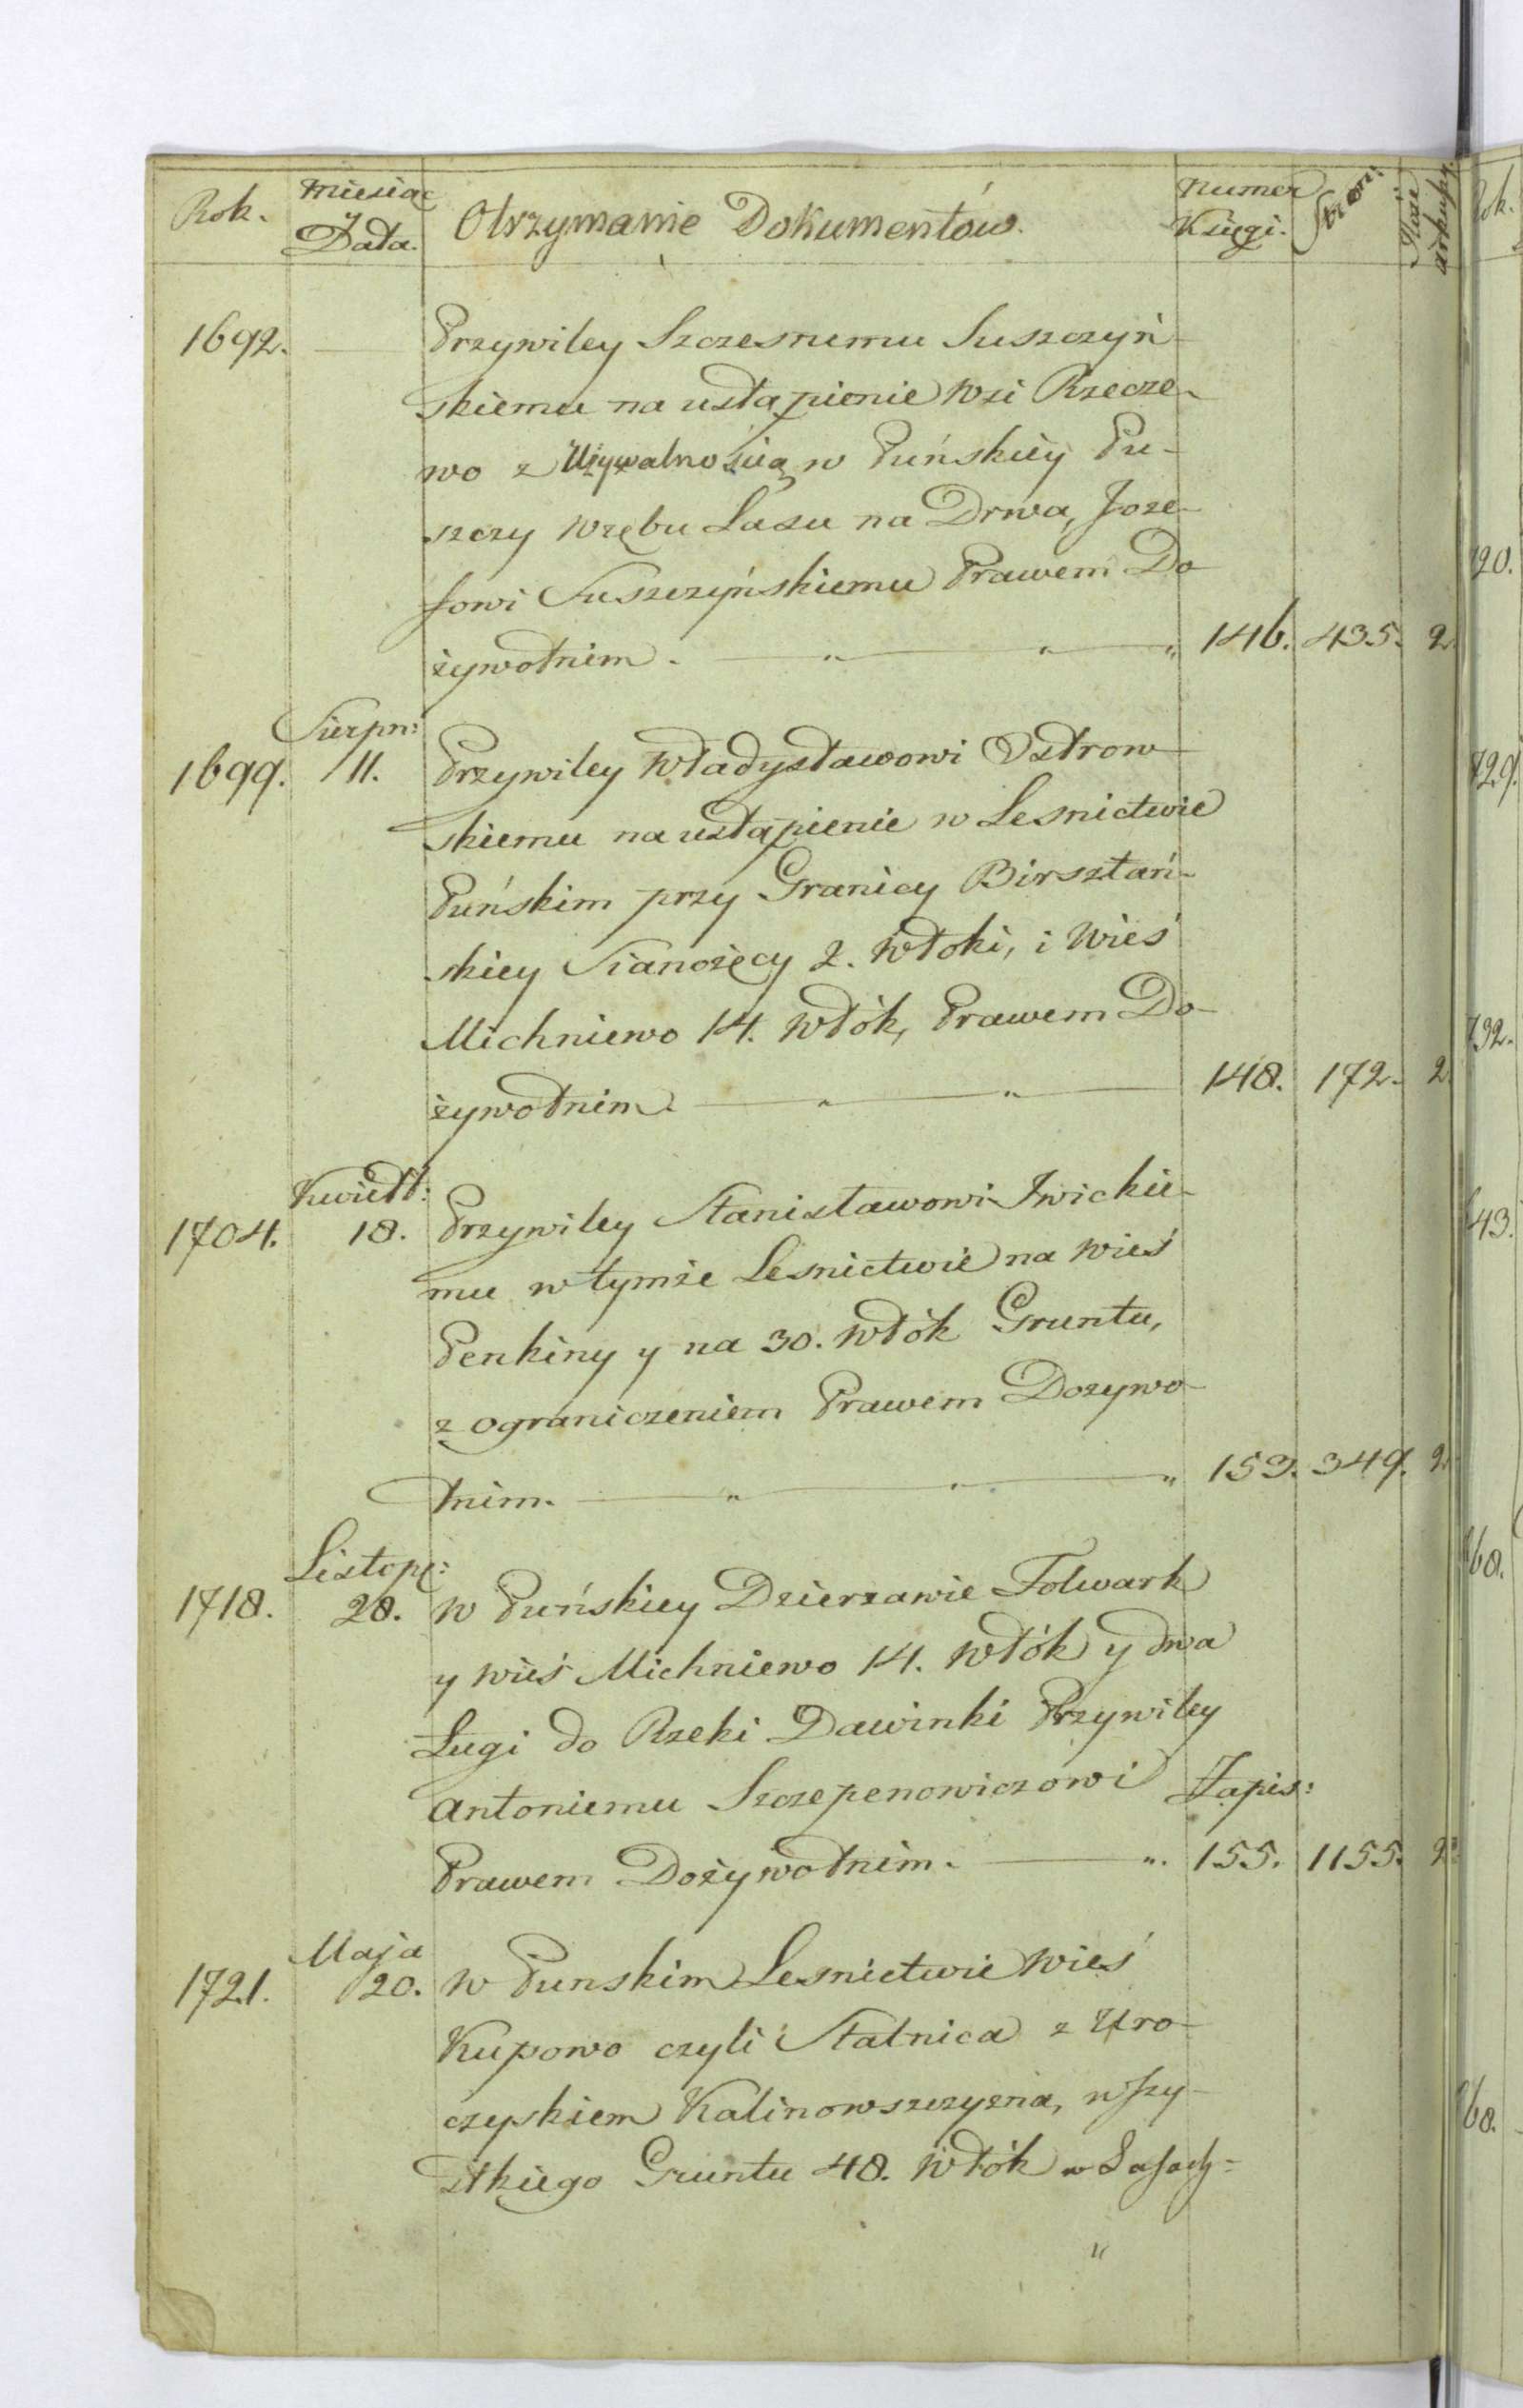 Rok. Miesiąc y Data. Otrzymanie Dokumentów. Numer Księgi. Stron: Ilosc arkuszy.
1692. Przywiley Szczesnemu Suszczyń-
skiemu na ustąpienie wsi Rzecze-
wo z Używalnością w Puńskiey Pu-
szczy wrębu Lasu na Drwa, Joze-
fowi Suszczyńskiemu Prawem Do
żywotnim. 146. 435. 2
Sierpn:
1699. 11. Przywiley Władysławowi Ostrow-
skiemu na ustąpienie w Lesnictwie
Puńskim przy Granicy Birsztań-
skiey Sianożęcy 2. Włoki, i Wieś
Michniewo 14. Włók, Prawem Do-
żywotnim. 148. 172. 2
Kwiett:
1704. 18. Przywiley Stanisławowi Iwickie-
mu w tymże Lesnictwie na wieś
Penkiny y na 30. Włók Gruntu,
z ograniczeniem Prawem Dozywo-
tnim. 153. 349. 2
Listop:
1718. 28. W Puńskiey Dzierzawie Folwark
y wieś Michniewo 14. Włók y dwa
Ługi do Rzeki Dawinki Przywiley
Antoniemu Szczepenowiczowi Zapis:
Prawem Dożywotnim. 155. 1155. 2
Maja
1721. 20. W Punskim Lesnictwie wieś
Kupowo czyli Stalnica z Uro-
czyskiem Kalinowszczyzna, wszy-
stkiego Gruntu 48. Włók w Lasach